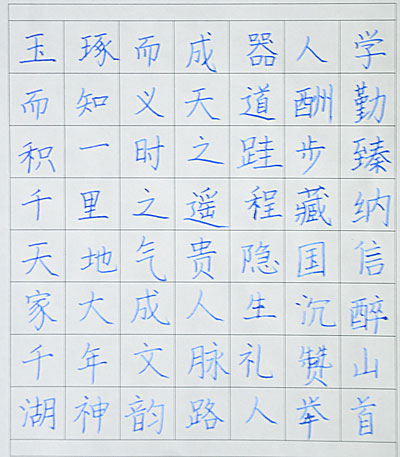 玉琢而成器人学
而知义天道酬勤
积一时之跬步臻
千里之遥程藏纳
天地气贵隐国信
家大成人生沉醉
千年文脉礼赞山
湖神韵路人举首